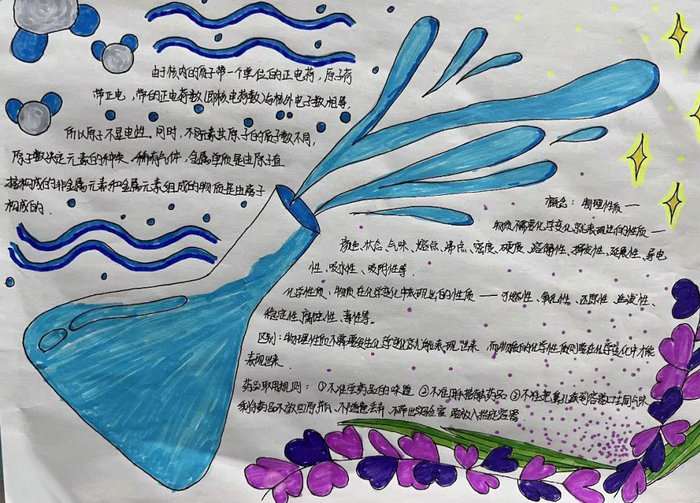 由于核内的质子带一个单位的正电荷，原子荷
带正电，带的正电荷数(即核电荷数)与核外电子数相等，
所以原子不显电性。同时，不同元素其原子的质子数不同，
质子数决定元素的种类，稀有气体，金属单质是由原子直
接构成的非金属元素和金属元素组成的物质是由离子
构成的
概念：物理性质一
物质不需要化学变化就表现出的性质一
颜色、状态、气味、熔点、沸点、密度、硬度、溶解性、挥发性、延展性、导电
性、吸水性、吸附性等
化学性质：物质在化学变化中表现出的性质——可燃性、氧化性、还原性、
稳定性、腐蚀性、毒性等。
区别：物理性质不需要发生化学变化就能表现出来，而物质的化学性质则要在化学变化中才能
表现出来
药品取用规则：①不准尝药品的味道 ②不准用手接触药品 ③不准
剩余药品不放回原瓶、不随意丢弃、不带出实验室 要放入指定容器